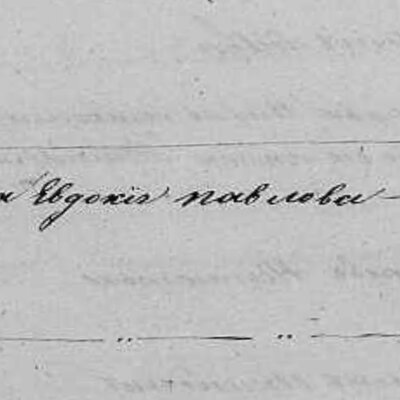 Евдокія павлова